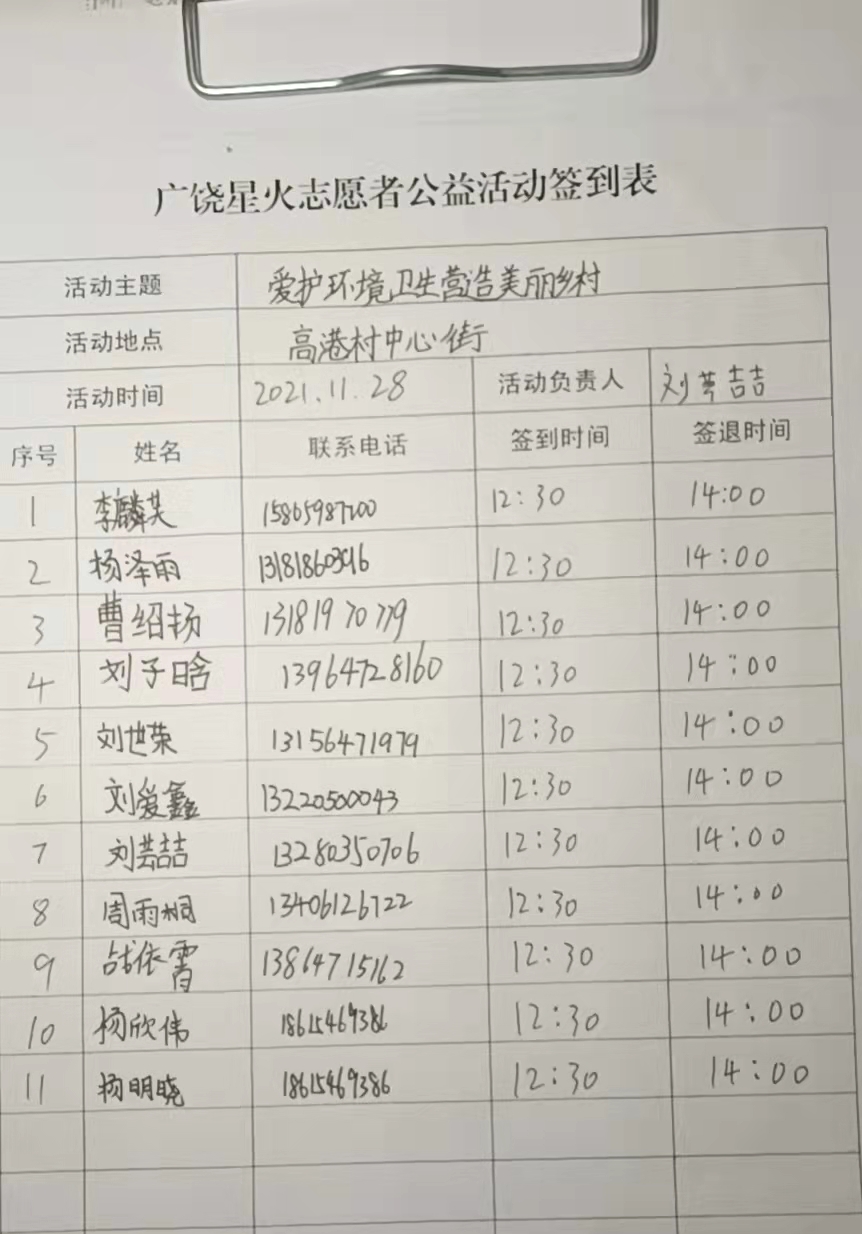 广饶星火志愿者公益活动签到表
活动主题 爱护环境卫生营造美丽乡村
活动地点 高港村中心街
活动时间 2021.11.28 活动负责人 刘芸喆
序号 姓名 联系电话 签到时间 签退时间
1 李麟芙 15865987200 12:30 14:00
2 杨泽雨 12:30 14:00
3 曹绍扬 13181970779 12:30 14:00
4 刘子晗 13964728160 12:30 14:00
5 刘世荣 13156471979 12:30 14:00
6 刘爱鑫 13220500043 12:30 14:00
7 刘芸喆 13280350706 12:30 14:00
8 周雨桐 13406126722 12:30 14:00
9 战依霄 13864715162 12:30 14:00
10 杨欣伟 18615469386 12:30 14:00
11 杨明晓 18615469386 12:30 14:00